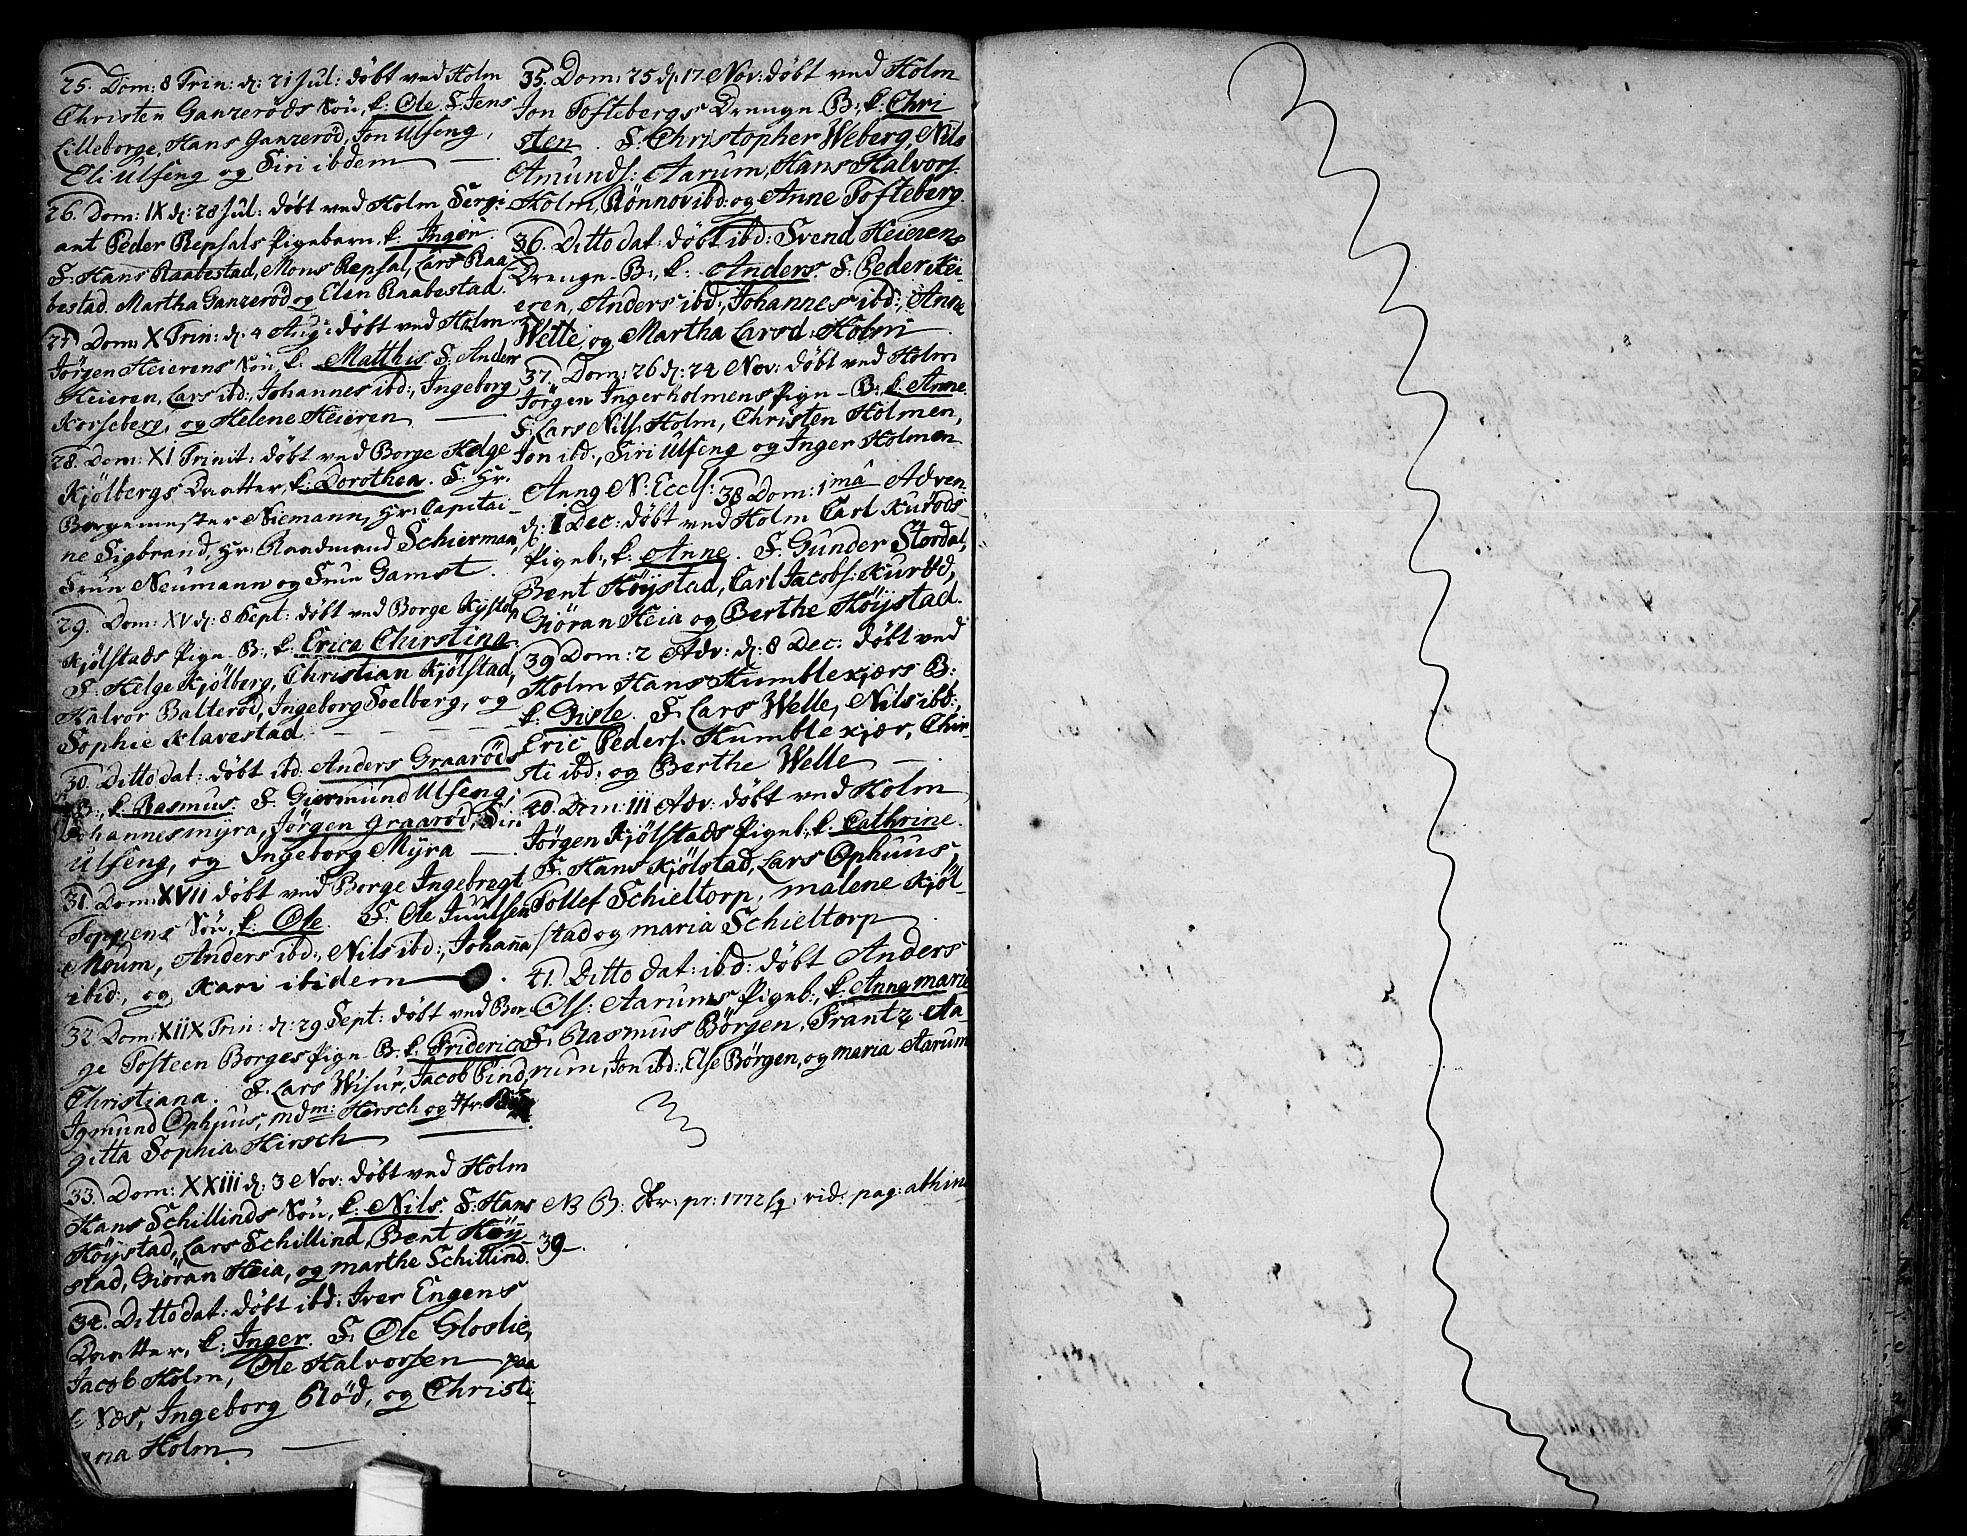 25. Dom: 8 Trin: d: 21 Jul: döbt ved Holm
Christen Ganzeröds Sön, k: Ole. F. Jens
Lilleborge, Hans Ganzeröd, Jon Ulfeng,
Eli Ulfeng og Siri ibdem —
26. Dom: IX d: 28 Jul: döbt ved Holm Sergi-
ant Peder Repsals Pigebarn, k: Inger.
F. Hans Raabestad, Mons Repsal, Lars Raa-
bestad. Martha Ganzeröd og Elen Raabestad.
27. Dom: X Trin: d: 4 Aug: döbt ved Holm
Jörgen Heierens Sön, k: Matthis. F. Anders
Heieren, Lars ibd:, Johannes ibd:, Ingeborg
Korseberg, og Helene Heieren —
28. Dom: XI Trinit: döbt ved Borge Helge
Kjölbergs Daatter, k: Dorothea. F. Hr.
Borgemester Niemann, Hr: Capitai-
ne Sigbrand, Hr: Raadmand Schierman,
Frun Neumann og Frun Gamst.
29. Dom: XV d: 8 Sept: döbt ved Borge
Kjölstads Pige-B:, k: Erica Chirstina.
F. Helge Kjölberg, Christian Kjölstad,
Halvor Balteröd, Ingeborg Soelberg, og
Sophie Klavestad — — —
30. Ditto dat: döbt ibd: Anders Graaröds
B:, k: Rasmus. F. Giermund Ulfeng,
Johannes Myra, Jörgen Graaröd, Siri
Ulfeng, og Ingeborg Myra —
31. Dom: XVII döbt ved Borge Ingebregt
Toppens Sön, k: Ole. F. Ole Juulsen
Moum, Anders ibd:, Nils ibd:, Johanna
ibid:, og Kari ibidem —
32. Dom: XIIX Trin: d: 29 Sept: döbt ved Bor-
ge Tosteen Borges Pige B. k: Friderica
Christiana. F. Lars Wisur, Jacob Pind,
Igmund Ophuus, mdm: Hersch og Fr:
gitta Sophia Hirsch —
33. Dom: XXIII d: 3 Nov: döbt ved Holm
Hans Schillinds Sön, k: Nils. F: Hans
Höystad, Lars Schillind, Bent Höy-
stad, Giöran Heia, og marthe Schillind.
34. Ditto dat: döbt ibd: Iver Engens
Daatter, k: Inger. F. Ole Gloslie,
Jacob Holm, Ole Halvorsen paa
Næs, Ingeborg Röd, og Christi-
ana Holm —
35. Dom: 25 d: 17 Nov: döbt ved Holm
Jon Toftebergs Drenge B:, k: Chri
sten. F. Christopher Weberg, Nils
Amunds: Aarum, Hans Halvors.
Holm, Rönnov ibd: og Anne Tofteberg.
36. Ditto dat: döbt ibd: Svend Heierens
Drenge-B:, k: Anders. F. Peder Hei-
eren, Anders ibd:, Johannes ibd:, Anne
Wette, og Martha Larsd: Holm.
37. Dom: 26 d: 24 Nov: döbt ved Holm
Jörgen Ingerholmens Pige-B:, k: Anne.
F. Lars Nils: Holm, Christen Holmen,
Jon ibd:, Siri Ulfeng og Inger Holmen
Anno N: Eccls: 38 Dom: 1mâ Adven
d: 1 Dec: döbt ved Holm Carl Kuröds
Pigeb:, k: Anne. F. Gunder Stordal,
Bent Höystad, Carl Jacobs: Kuröd,
Giöran Heia og Berthe Höystad.
39 Dom: 2 Adv: d: 8 Dec: döbt ved
Holm Hans Humblekjærs B:
k: Gisle. F. Lars Welle, Nils ibd:,
Eric Peders. Humblekjær, Chir-
sti ibd: og Berthe Welle —
40. Dom: III Adv: döbt ved Holm
Jörgen Kjölstads Pigeb:, k: Cathrine.
F. Hans Kjölstad, Lars Ophuus,
Tollef Schieltorp, malene Kjöl-
stad og maria Schieltorp
41. Ditto dat: ibd: döbt Anders
Ols: Aarums Pigeb:, k: Anne marie
F. Rasmus Börgen, Frantz Aa-
rum, Jon ibd:, Else Börgen, og maria Aarum
NB B: pr: 1772 vid: pag:
39.